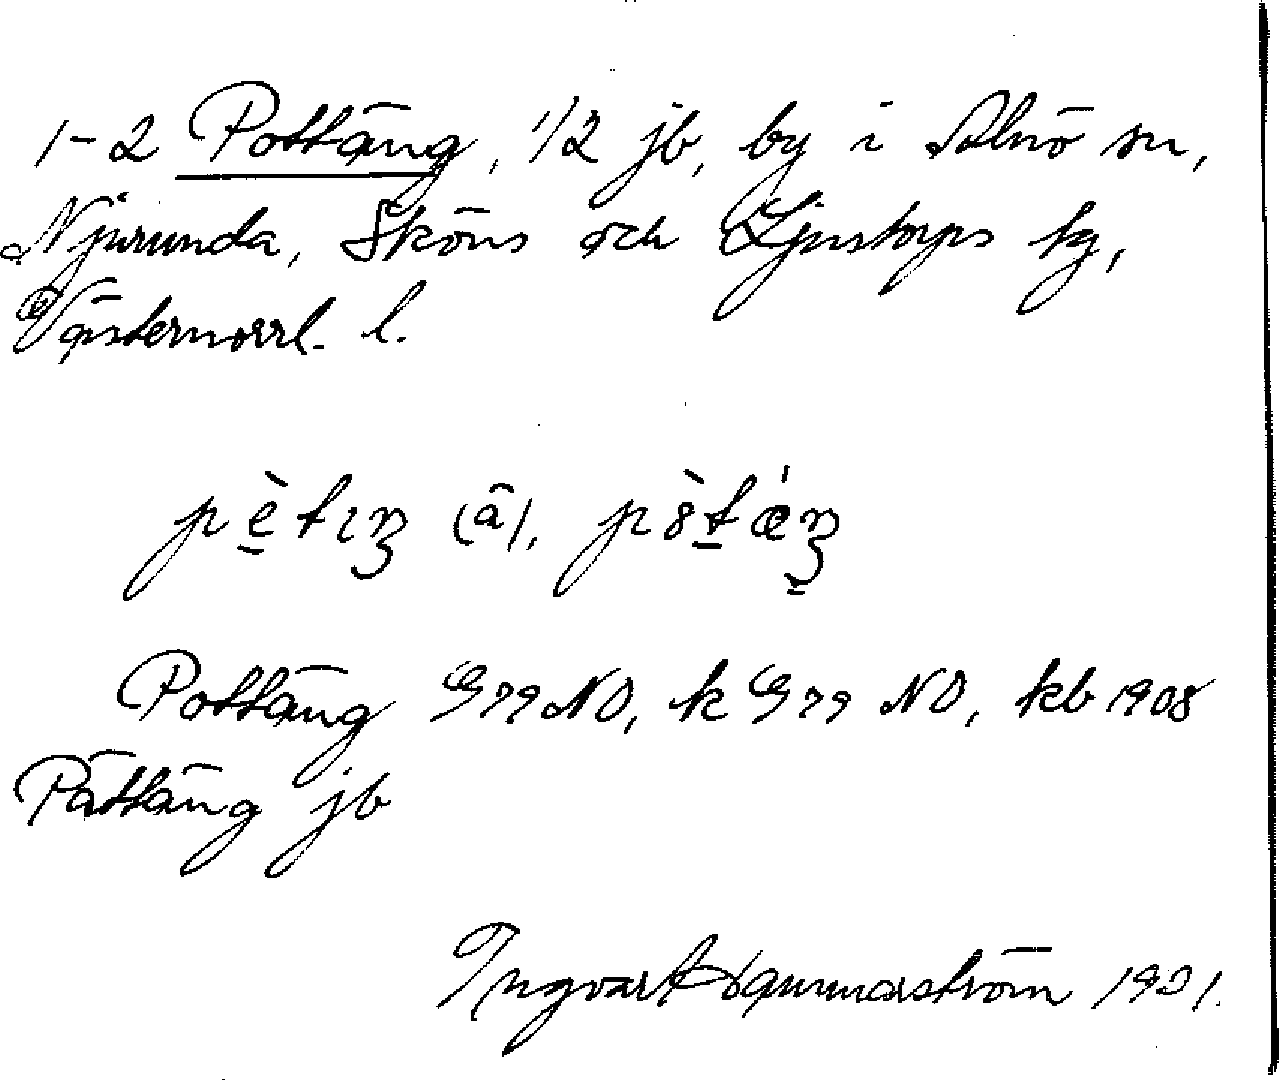 1-2 Pottäng, 1/2 jb, by i Alnö sn,
Njurunda, Sköns och Ljustorps tg,
Västernorrl. l.
Pottäng G79NO, k G79 NO, kb 1908
Påttäng jb
Ingvart Hammarström 1931.